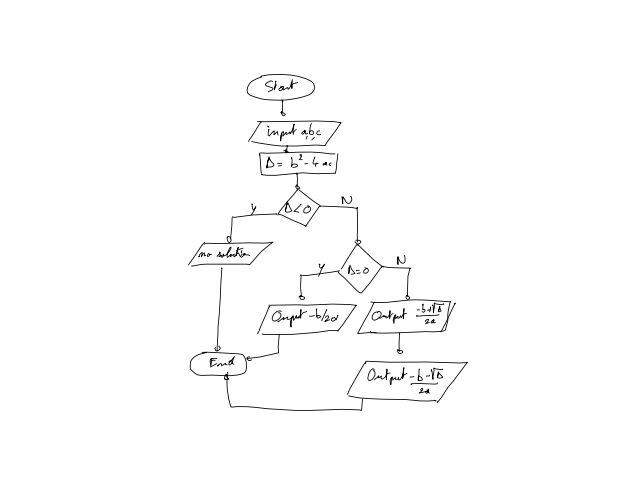 Start
input a,b,c
Δ = b² - 4 ac
Δ<0
Y
N
no solution
Δ=0
Y
N
Output -b/2a
Output -b+√Δ/2a
End
Output -b-√Δ/2a